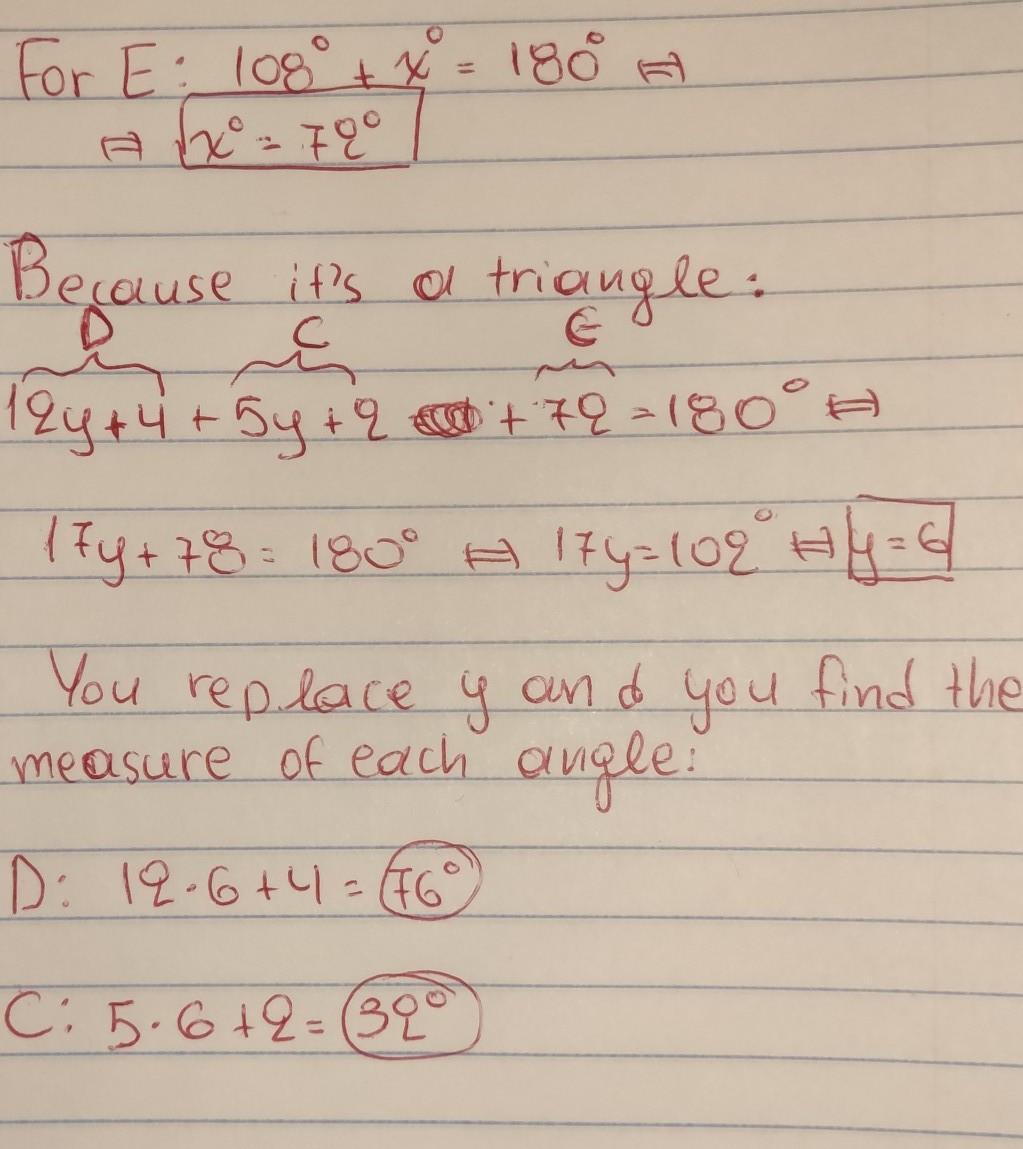 For E: 108° + x° = 180° ⇔
⇔ x° = 72°
Because it's a triangle:
D C E
12y+4 + 5y+2 + 72 = 180° ⇔
17y+78 = 180° ⇔ 17y=102° ⇔ y=6
You replace y and you find the
measure of each angle:
D: 12·6+4 = 76°
C: 5·6+2 = 32°